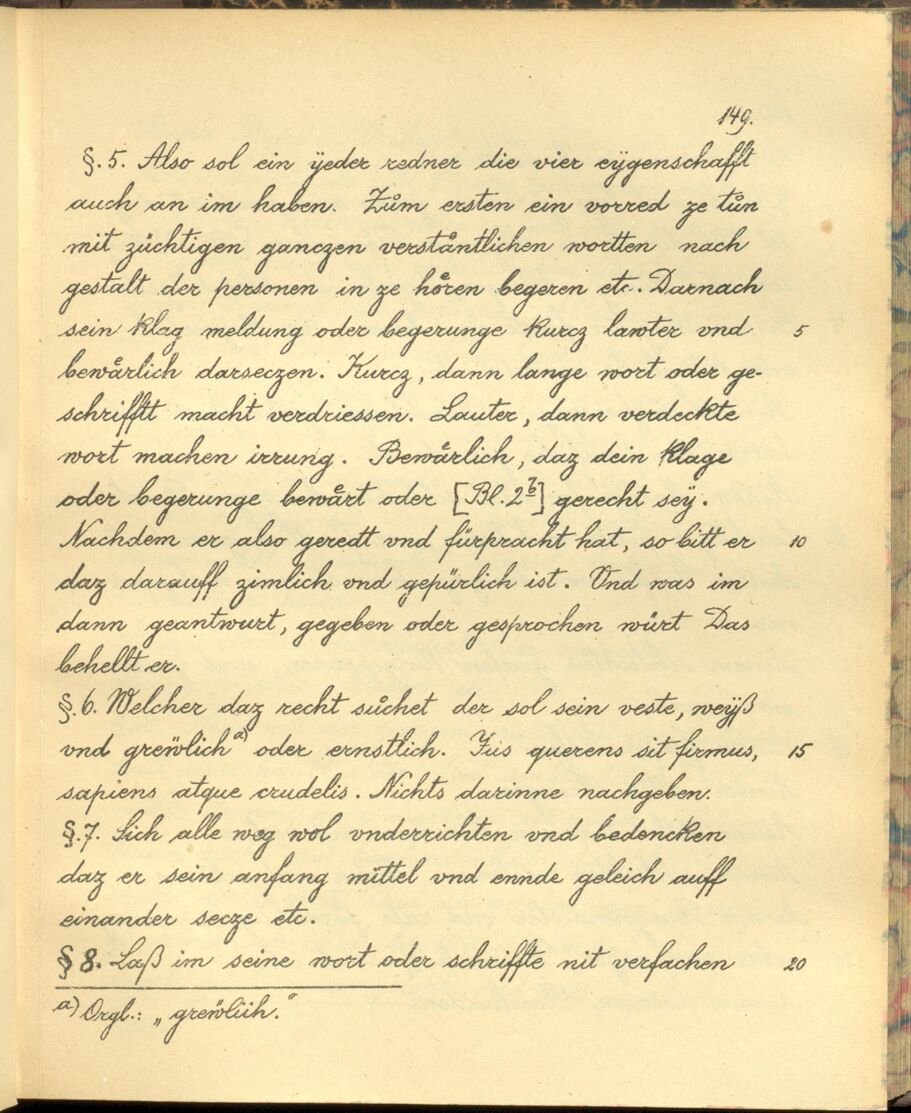 149.
§. 5. Also sol ein ÿeder redner die vier eÿgenschafft
auch an im haben. Zům ersten ein vorred ze tůn
mit züchtigen ganczen verståntlichen wortten nach
gestalt der personen in ze hoͤren begeren etc. Darnach
sein klag meldung oder begerunge kurcz lawter vnd 5
bewaͤrlich darseczen. Kurcz, dann lange wort oder ge-
schrifftt macht verdriessen. Lauter, dann verdeckte
wort machen irrung. Bewaͤrlich, daz dein klage
oder begerunge bewaͤrt oder [Bl. 2ᵇ] gerecht seÿ.
Nachdem er also geredt vnd fürpracht hat, so bitt er 10
daz darauff zimlich vnd gepürlich ist. Vnd was im
dann geantwurt, gegeben oder gesprochen würt Das
behellt er.
§. 6. Welcher daz recht sůchet der sol sein veste, weÿß
vnd greẅlich a) oder ernstlich. Jus querens sit firmus, 15
sapiens atque crudelis. Nichts darinne nachgeben.
§. 7. Sich alle weg wol vnderrichten vnd bedencken
daz er sein anfang mittel vnd ennde geleich auff
einander secze etc.
§ 8. Laß im seine wort oder schriffte nit verfachen 20
a) Orgl.: „greẅliih."